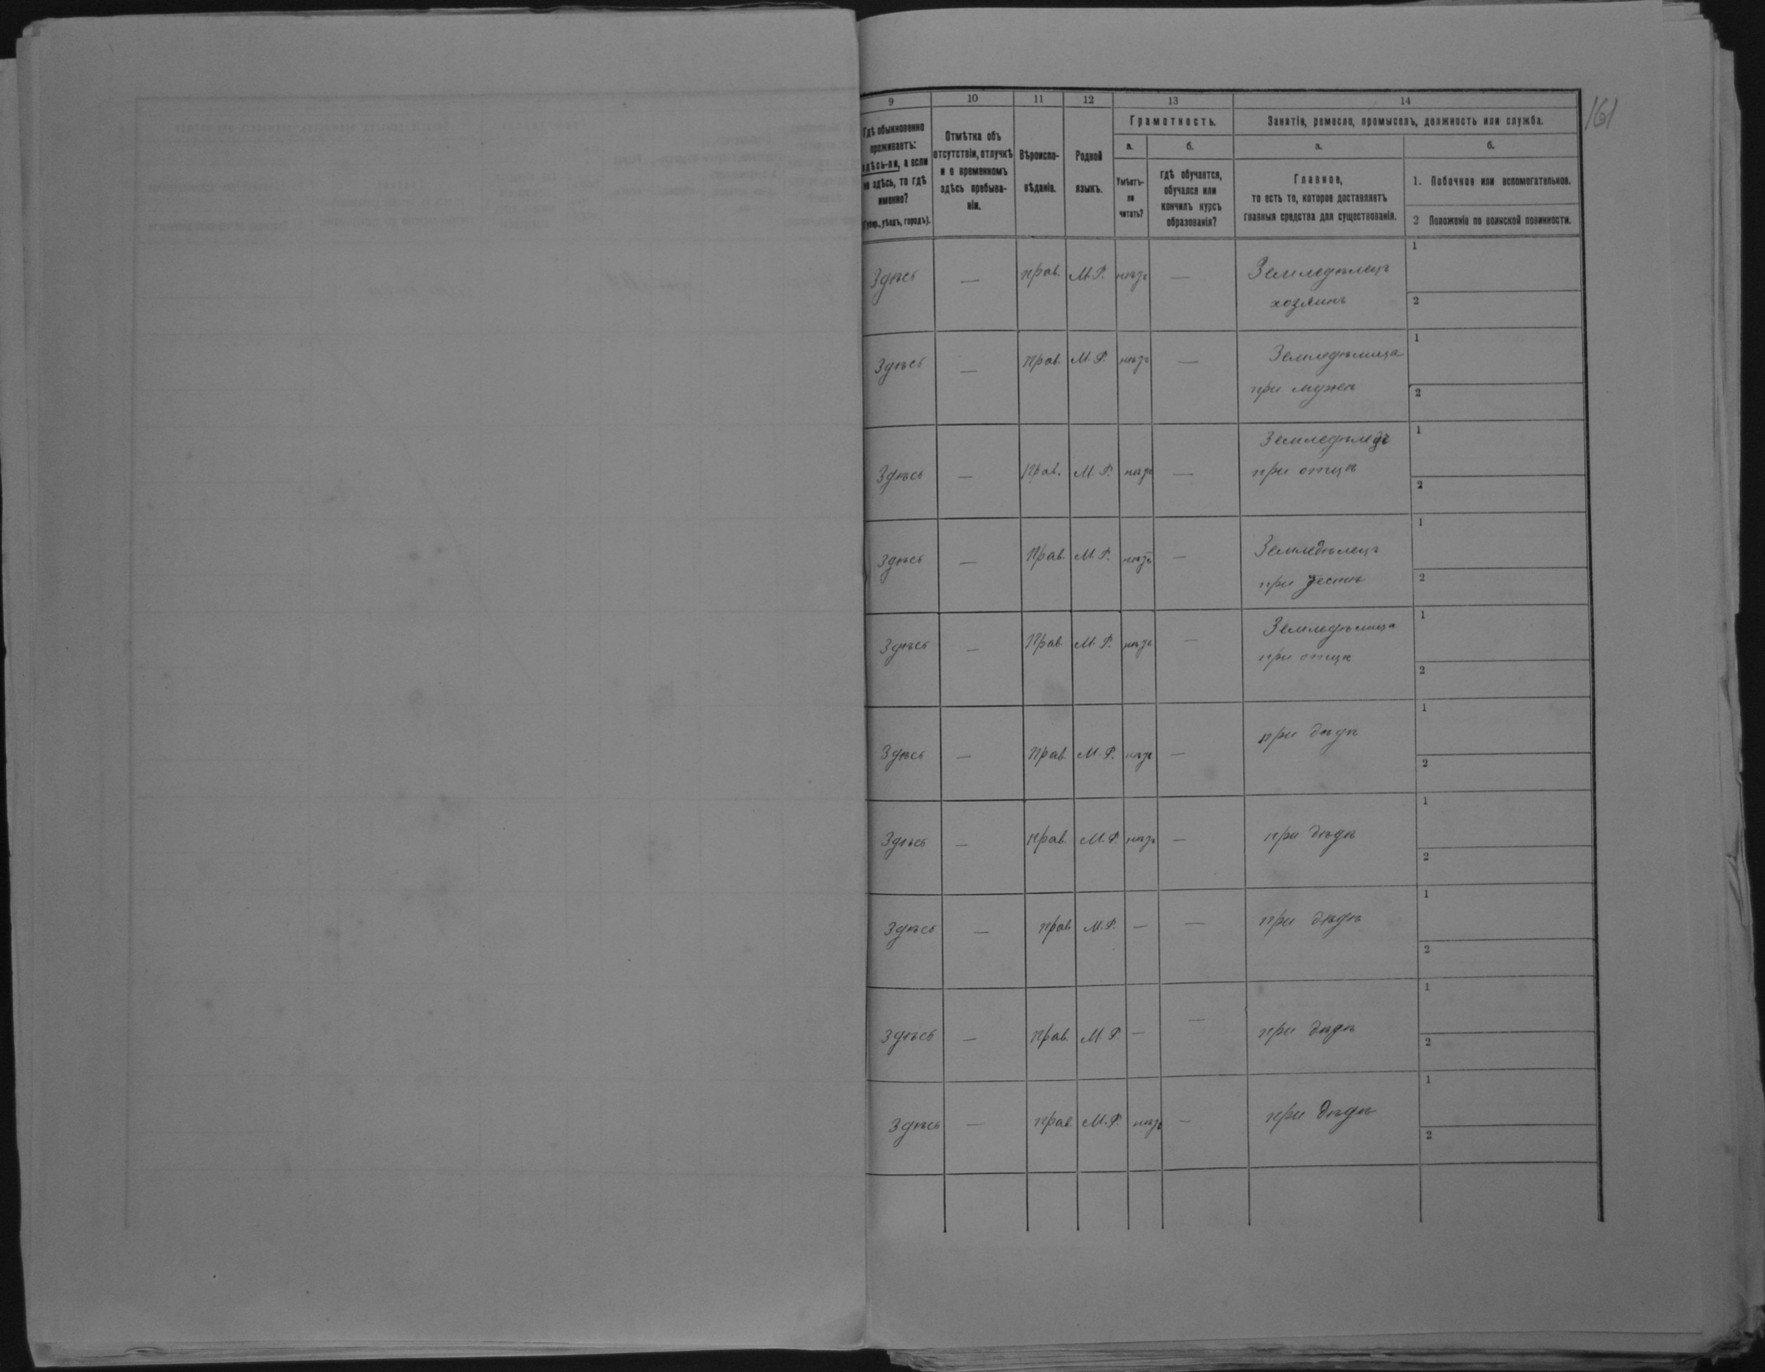 161
9 10 11 12 13 14
Гдѣ обыкновенно
проживаетъ:
здѣсь-ли, а если
не здѣсь, то гдѣ
именно?
(Губер., уѣздъ, городъ).
Отмѣтка объ
отсутствіи, отлучкѣ
и о временномъ
здѣсь пребыва-
ніи.
Вѣроиспо-
вѣданіе.
Родной
языкъ.
Грамотность.
а.
Умѣетъ-
ли
читать?
б.
гдѣ обучается,
обучался или
кончилъ курсъ
образованія?
Занятіе, ремесло, промыселъ, должность или служба.
а.
Главное,
то есть то, которое доставляетъ
главныя средства для существованія.
б.
1. Побочное или вспомогательное.
2 Положеніе по воинской повинности.
Здѣсь — прав. М.Р. нѣтъ — Земледѣлецъ 1
хозяинъ 2
Здѣсь — прав. М.Р. нѣтъ — Земледѣлица 1
при мужѣ 2
Здѣсь — прав. М.Р. нѣтъ — Земледѣлецъ 1
при отцѣ 2
Здѣсь — прав М.Р. нѣтъ — Земледѣлецъ 1
при тестѣ 2
Здѣсь — прав М.Р. нѣтъ — Земледѣлица 1
при отцѣ 2
Здѣсь — прав М.Р. нѣтъ — при дѣдѣ 1
2
Здѣсь — прав М.Р. нѣтъ — при дѣдѣ 1
2
Здѣсь — прав М.Р. — — при дѣдѣ 1
2
Здѣсь — прав М.Р — — при дѣдѣ 1
2
Здѣсь — прав М.Р. нѣтъ — при дѣдѣ 1
2